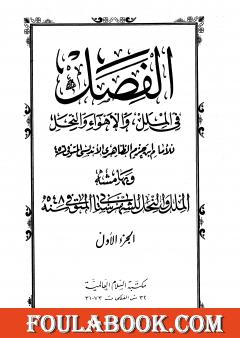 الفصل
في الملل والأهواء والنحل
للإمام ابن حزم الظاهري الأندلسي المتوفى
وبهامشه
الملل والنحل للشهرستاني المتوفى سنة ٥٤٨
الجزء الأول
مكتبة السلام العالمية
FOULABOOK.COM